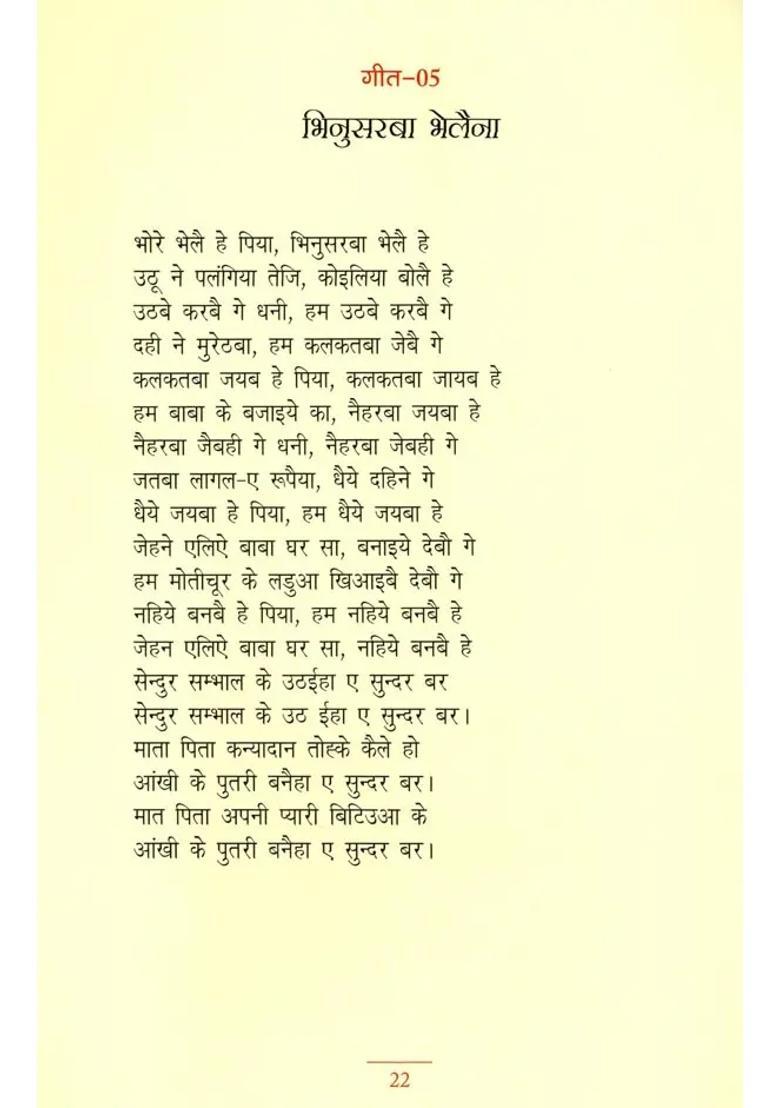 गीत–05
भिनुसरबा भेलैना
भोरे भेलै हे पिया, भिनुसरबा भेलै हे
उठू ने पलंगिया तेजि, कोइलिया बोलै हे
उठबे करबै गे धनी, हम उठबे करबै गे
दही ने मुरेठबा, हम कलकतबा जेबै गे
कलकतबा जयब हे पिया, कलकतबा जायब हे
हम बाबा के बजाइये का, नैहरबा जयबा हे
नैहरबा जैबही गे धनी, नैहरबा जेबही गे
जतबा लागल-ए रूपैया, धैये दहिने गे
धैये जयबा हे पिया, हम धैये जयबा हे
जेहने एलिऐ बाबा घर सा, बनाइये देबौ गे
हम मोतीचूर के लडुआ खिआइबै देबौ गे
नहिये बनबै हे पिया, हम नहिये बनबै हे
जेहन एलिऐ बाबा घर सा, नहिये बनबै हे
सेन्दुर सम्भाल के उठईहा ए सुन्दर बर
सेन्दुर सम्भाल के उठ ईहा ए सुन्दर बर।
माता पिता कन्यादान तोह्के कैले हो
आंखी के पुतरी बनैहा ए सुन्दर बर।
मात पिता अपनी प्यारी बिटिउआ के
आंखी के पुतरी बनैहा ए सुन्दर बर।
22